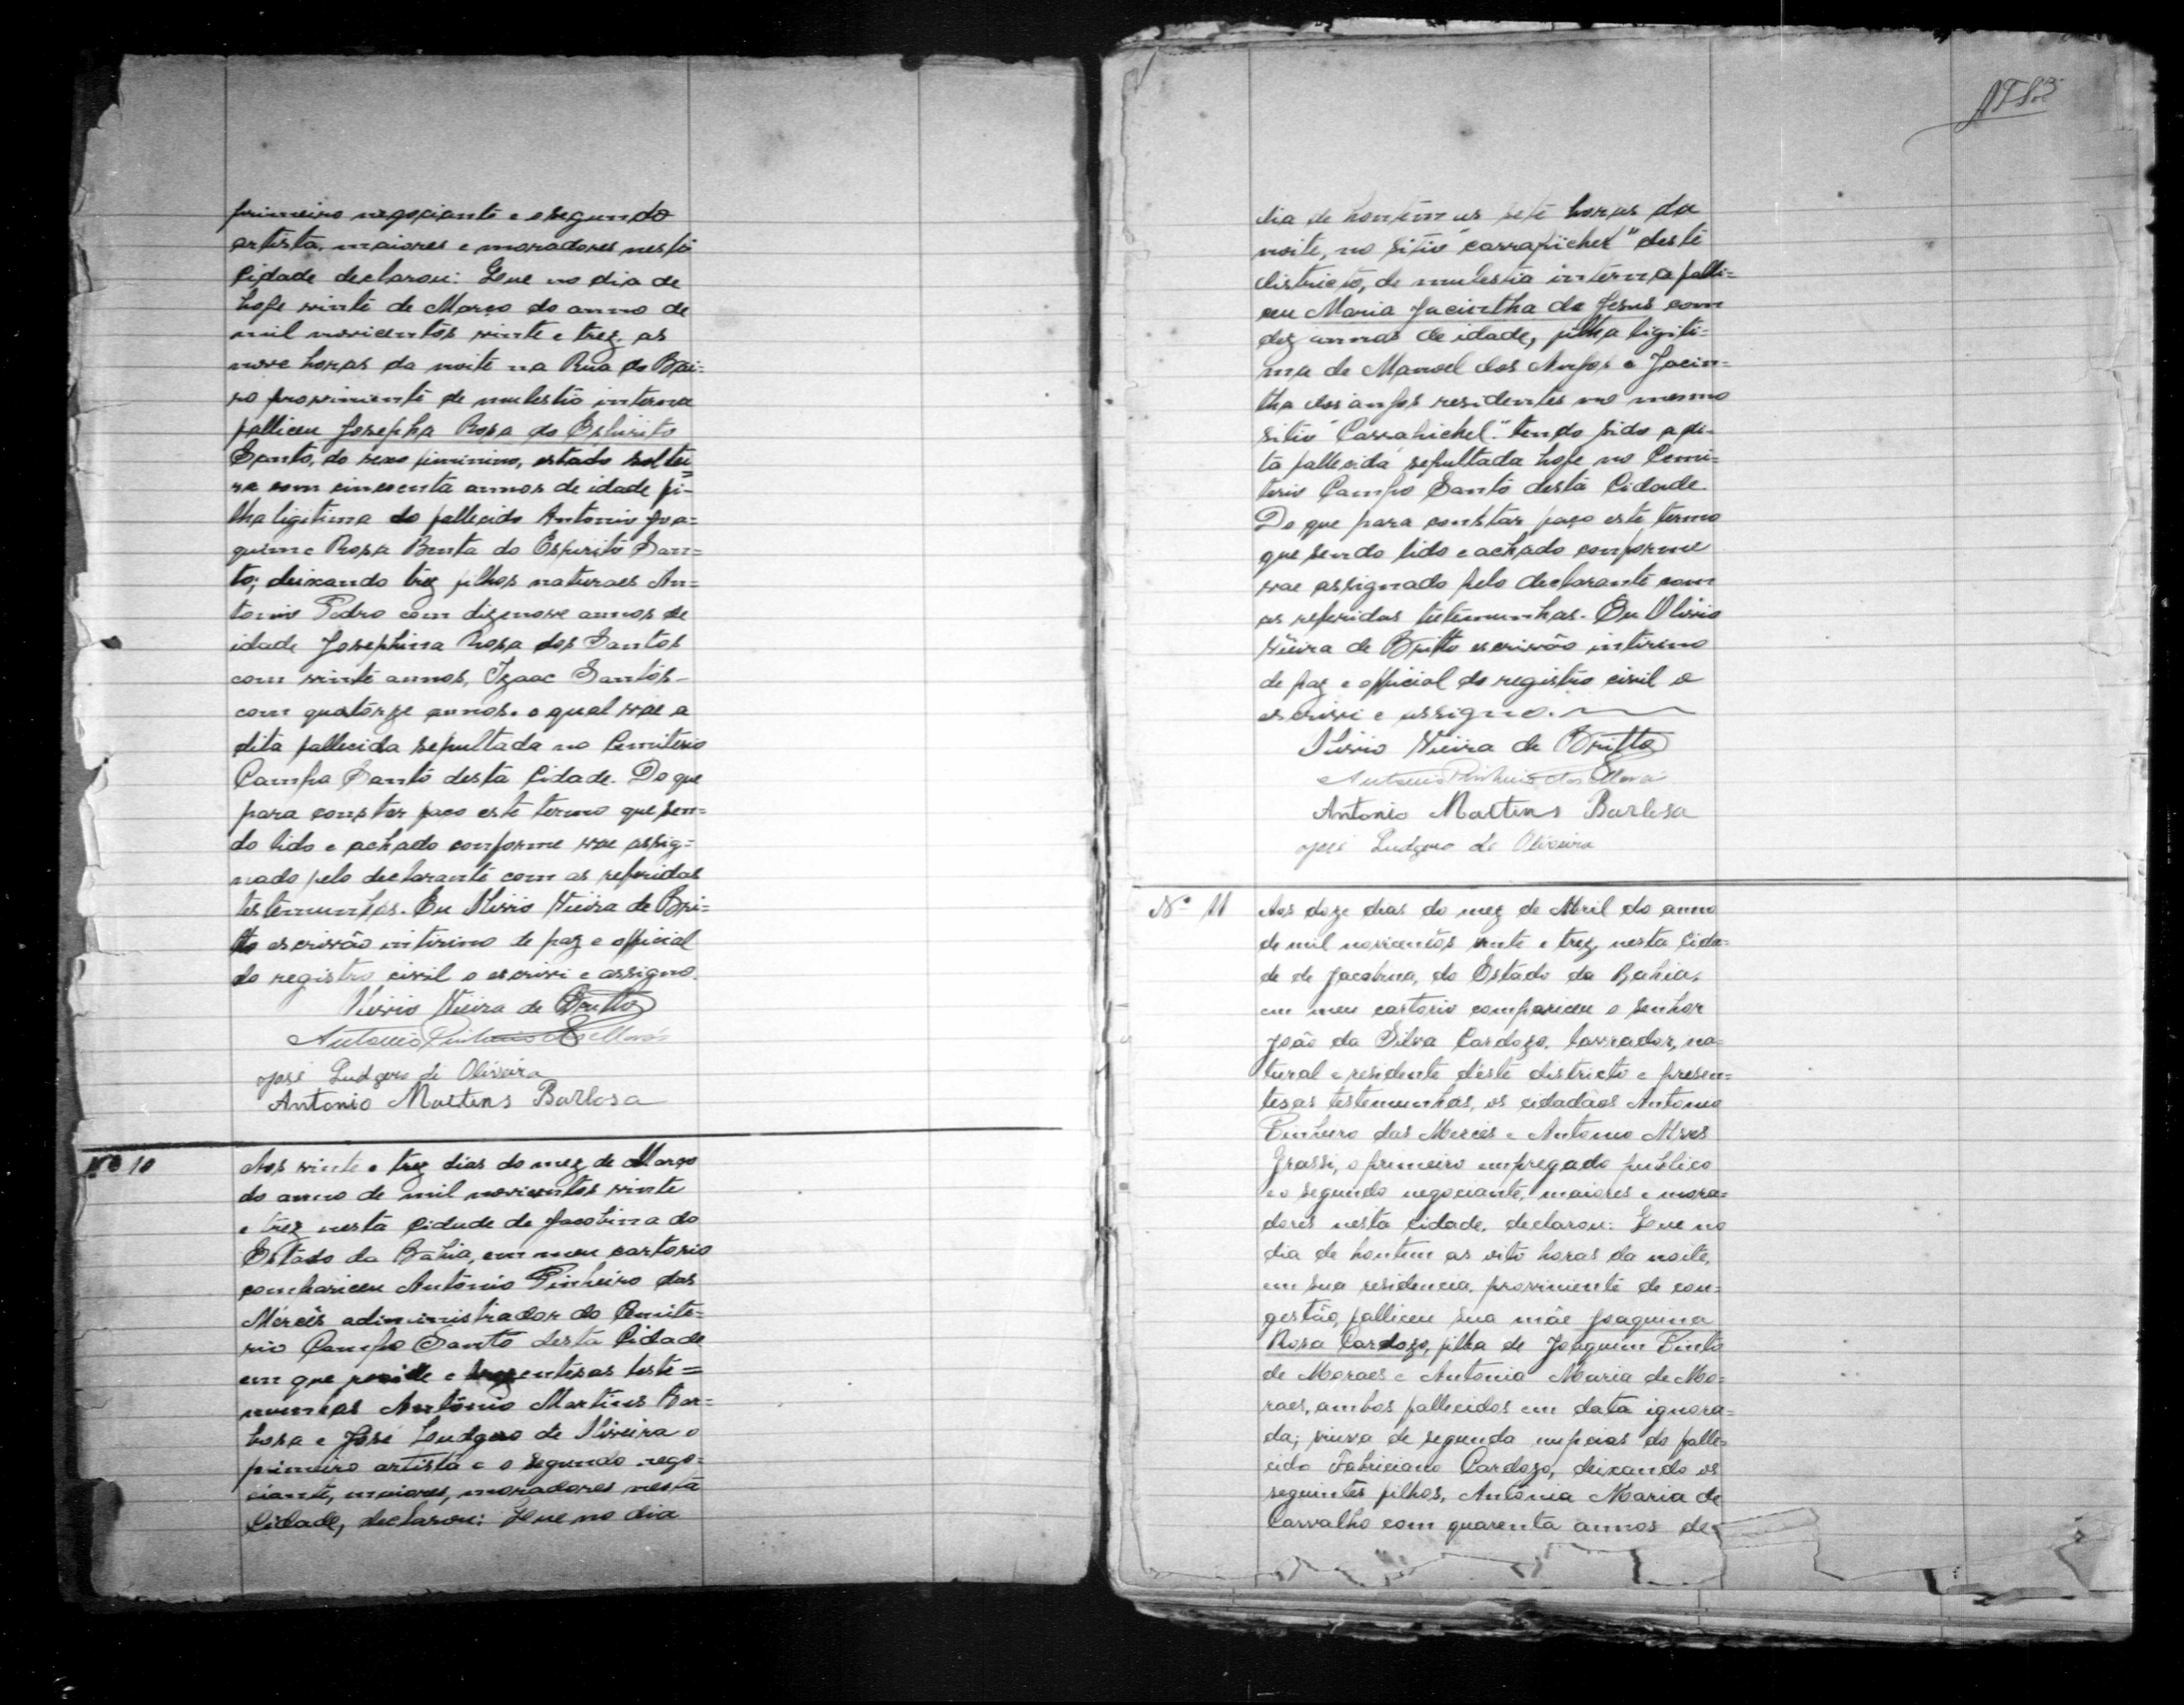 primeiro negociante e o segundo
artista, maiores e moradores nesta
Cidade declarou: Que no dia de
hoje vinte de Março do anno de
mil novicentos vinte e trez, as
nove horas da noite na Rua do
proviniente de mulestia interna
falliceu Josepha Rosa do Espirito
Santo, do sexo fiminino, estado soltei
ra com cincoenta annos de idade fi-
lha ligitima do fallecido Antonio Joa-
quim e Rosa Benta do Espirito San-
to; deixando trez filhos naturaes An-
tonio Pedro com dizenove annos de
idade Josephina Rosa dos Santos
com vinte annos, Izaac Santos-
com quatorze annos. o qual vae a
dita fallecida sepultada no Cemiterio
Campo Santo desta Cidade. Do que
para constar faço este termo que sen-
do lido e achado conforme vae assig-
nado pelo declarante com as referidas
testemunhas. Eu Olivio Vieira de Bri-
tto escrivão intirino de paz e official
do registro civil o escrivi e assigno.
Olivio Vieira de Britto
Antonio Pinheiro das Mercês
José Ludgero de Oliveira
Antonio Martins Barbosa
Nº 10
Aos vinte e trez dias do mez de Março
do anno de mil novicentos vinte
e trez nesta Cidade de Jacobina do
Estado da Bahia, em meu cartorio
compariceu Antônio Pinheiro das
Mercês administrador do Cemite-
rio Campo Santo desta Cidade
em que reside e prezentes as teste=
munhas Antônio Martins Bar-
bosa e José Ludgero de Oliveira o
primeiro artista e o segundo nego-
ciante, maiores, moradores nesta
Cidade, declarou: Que no dia
dia de hontem as sete horas da
noite, no sitio "Carrapichel" deste
districto, de mulestia interna falli-
ceu Maria Jacintha de Jesus com
dez annos de idade, filha ligiti-
ma de Manoel dos Anjos e Jacin-
tha dos anjos residentes no mesmo
sitio "Carrapichel". tendo sido a di-
ta fallecida sepultada hoje no Cemi-
terio Campo Santo desta Cidade.
Do que para constar faço este termo
que sendo lido e achado conforme
vae assignado pelo declarante com
as referidas testemunhas. Eu Olivio
Vieira de Britto escrivão intirino
de paz e official do registro civil o
escrivi e assigno.
Olivio Vieira de Britto
Antonio Pinheiro das Mercês
Antonio Martins Barbosa
José Ludgero de Oliveira
Nº 11
Aos doze dias do mez de Abril do anno
de mil novicentos vinte e trez, nesta Cida-
de de Jacobina, do Estado da Bahia,
em meu cartorio compariceu o senhor
João da Silva Cardozo, lavrador, na-
tural e residente déste districto e presen-
tes as testemunhas, os cidadãos Antonio
Pinheiro das Mercês e Antonio Alves
Grassi, o primeiro empregado publico
e o segundo negociante, maiores e mora-
dores nesta cidade, declarou: Que no
dia de hontem as oito horas da noite,
em sua residencia, proviniente de con-
gestão, falliceu sua mãe Joaquina
Rosa Cardozo, filha de Joaquim Pinto
de Moraes e Antonia Maria de Mo-
raes, ambos fallecidos em data ignora-
da; viuva de segunda nupcias do falle-
cido Fabriciano Cardozo, deixando os
seguintes filhos, Antônia Maria de
Carvalho com quarenta annos de